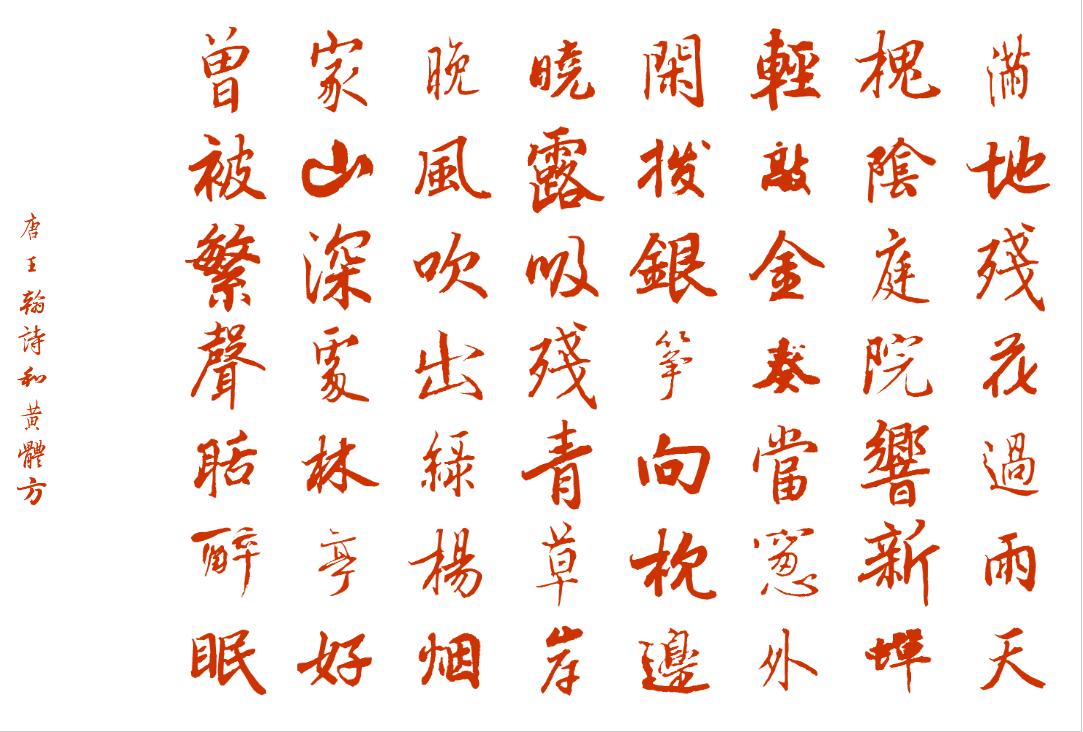 滿地殘花過雨天
槐陰庭院響新蟬
輕敲金奏當窻外
閑撥銀箏向枕邊
曉露吸殘青草岸
晚風吹出綠楊烟
家山深處林亭好
曾被繁聲聒醉眠
唐王翰詩和黃體方